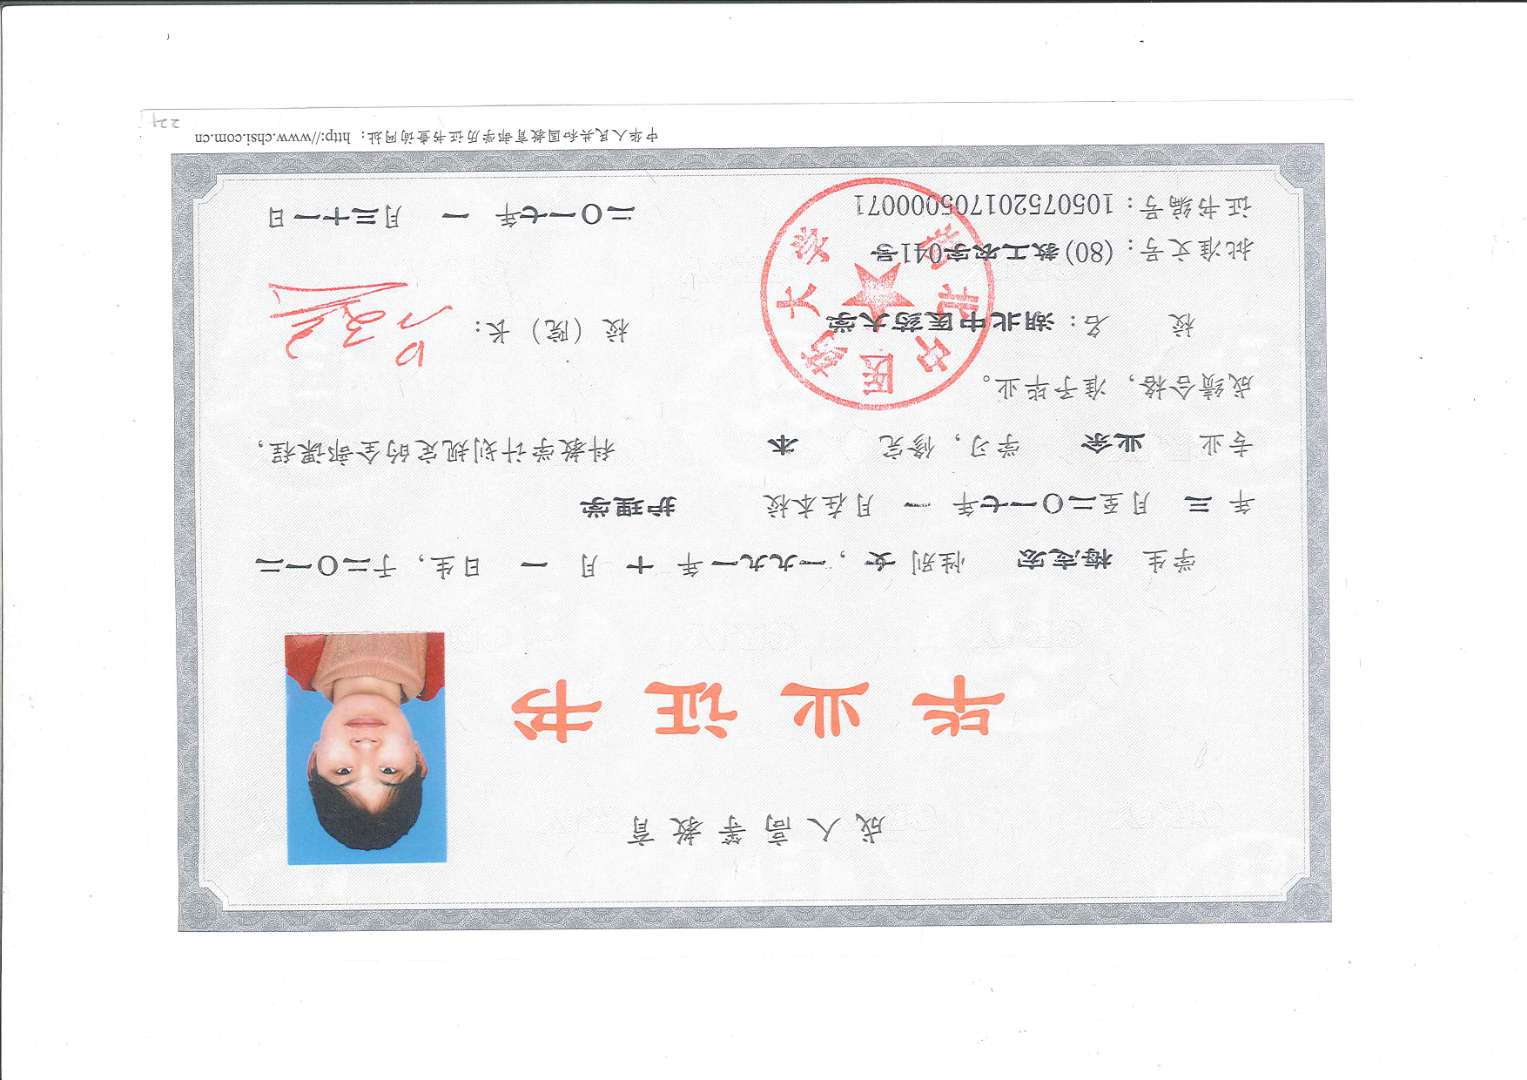 成人高等教育
毕业证书
学生 梅志宏 性别 女，一九九一年 十 月 一 日生，于二〇一二
年 三 月至二〇一七年 一 月在本校 护理学
专业 业余 学习，修完 本 科教学计划规定的全部课程，
成绩合格，准予毕业。
校 名：湖北中医药大学 校（院）长：
批准文号：(80)教工农字041号
证书编号：105075201705000071 二〇一七年 一 月三十一日
中华人民共和国教育部学历证书查询网址：http://www.chsi.com.cn